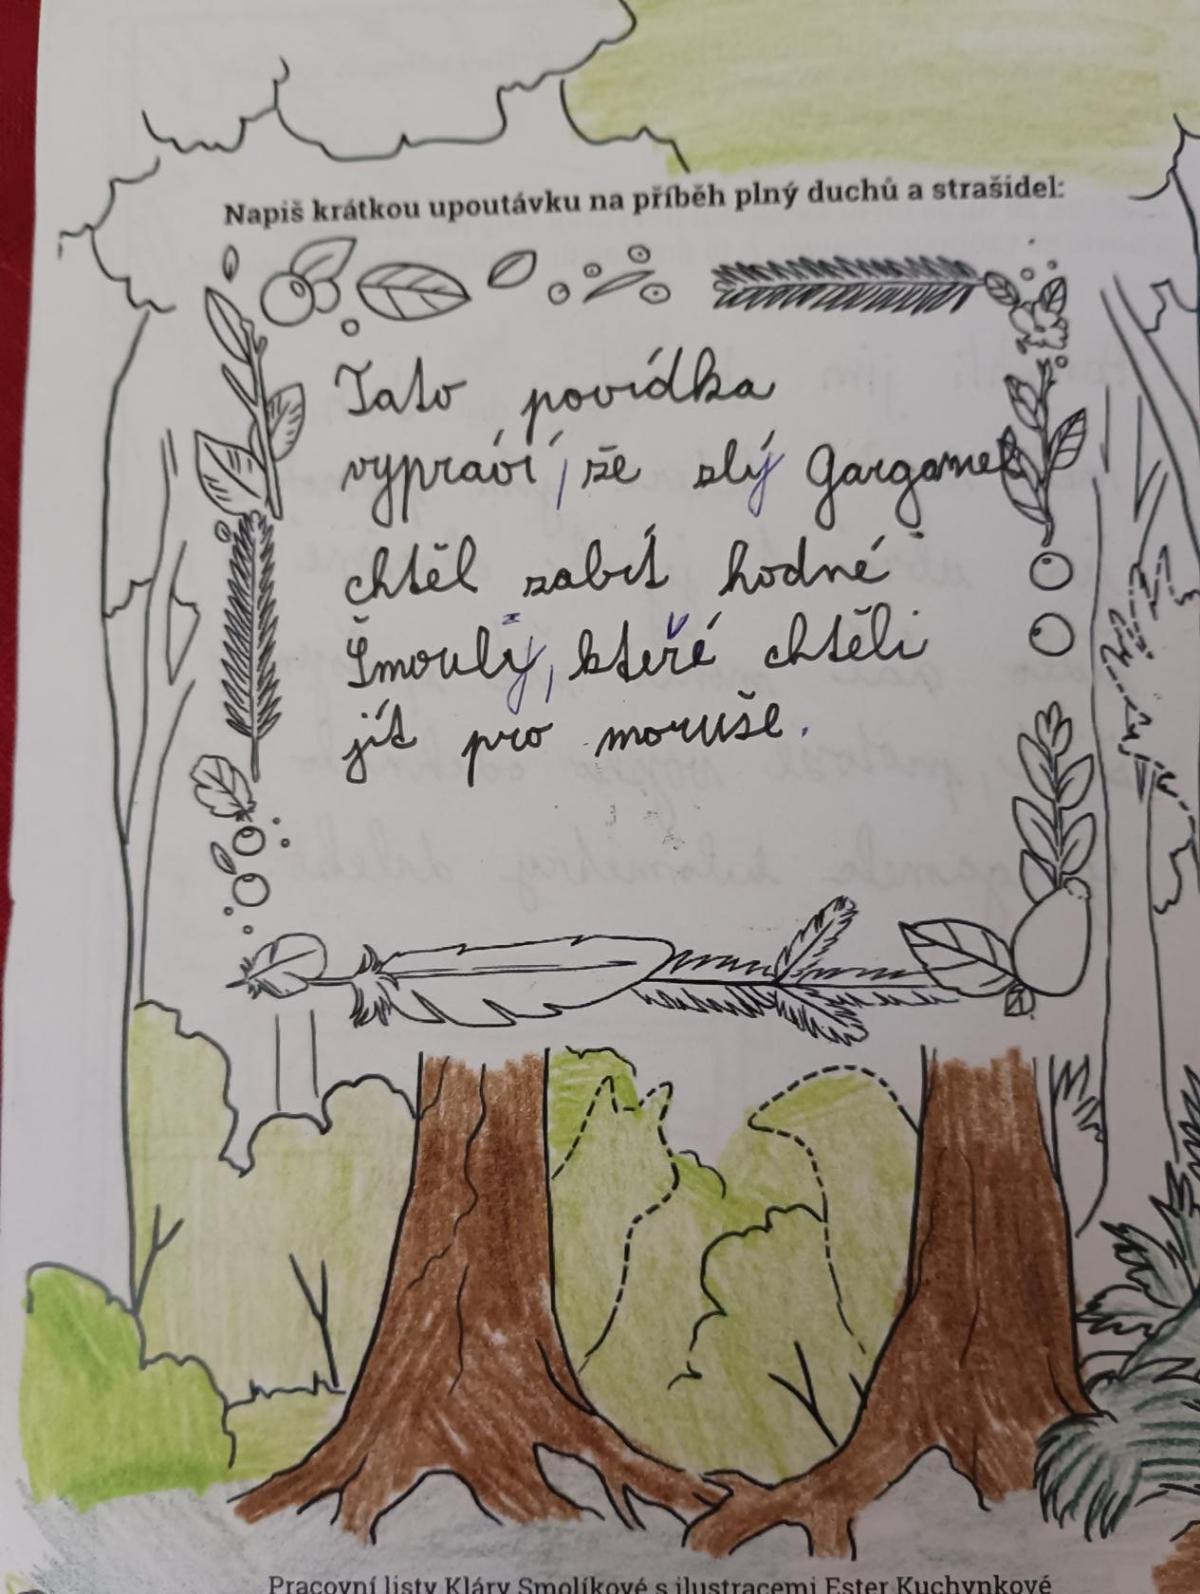 Napiš krátkou upoutávku na příběh plný duchů a strašidel:
Tato povídka
vypráví, že zlý Gargamel
chtěl zabít hodné
Šmouly, kteřé chtěli
jít pro moruše.
Pracovní listy Kláry Smolíkové s ilustracemi Ester Kuchynkové